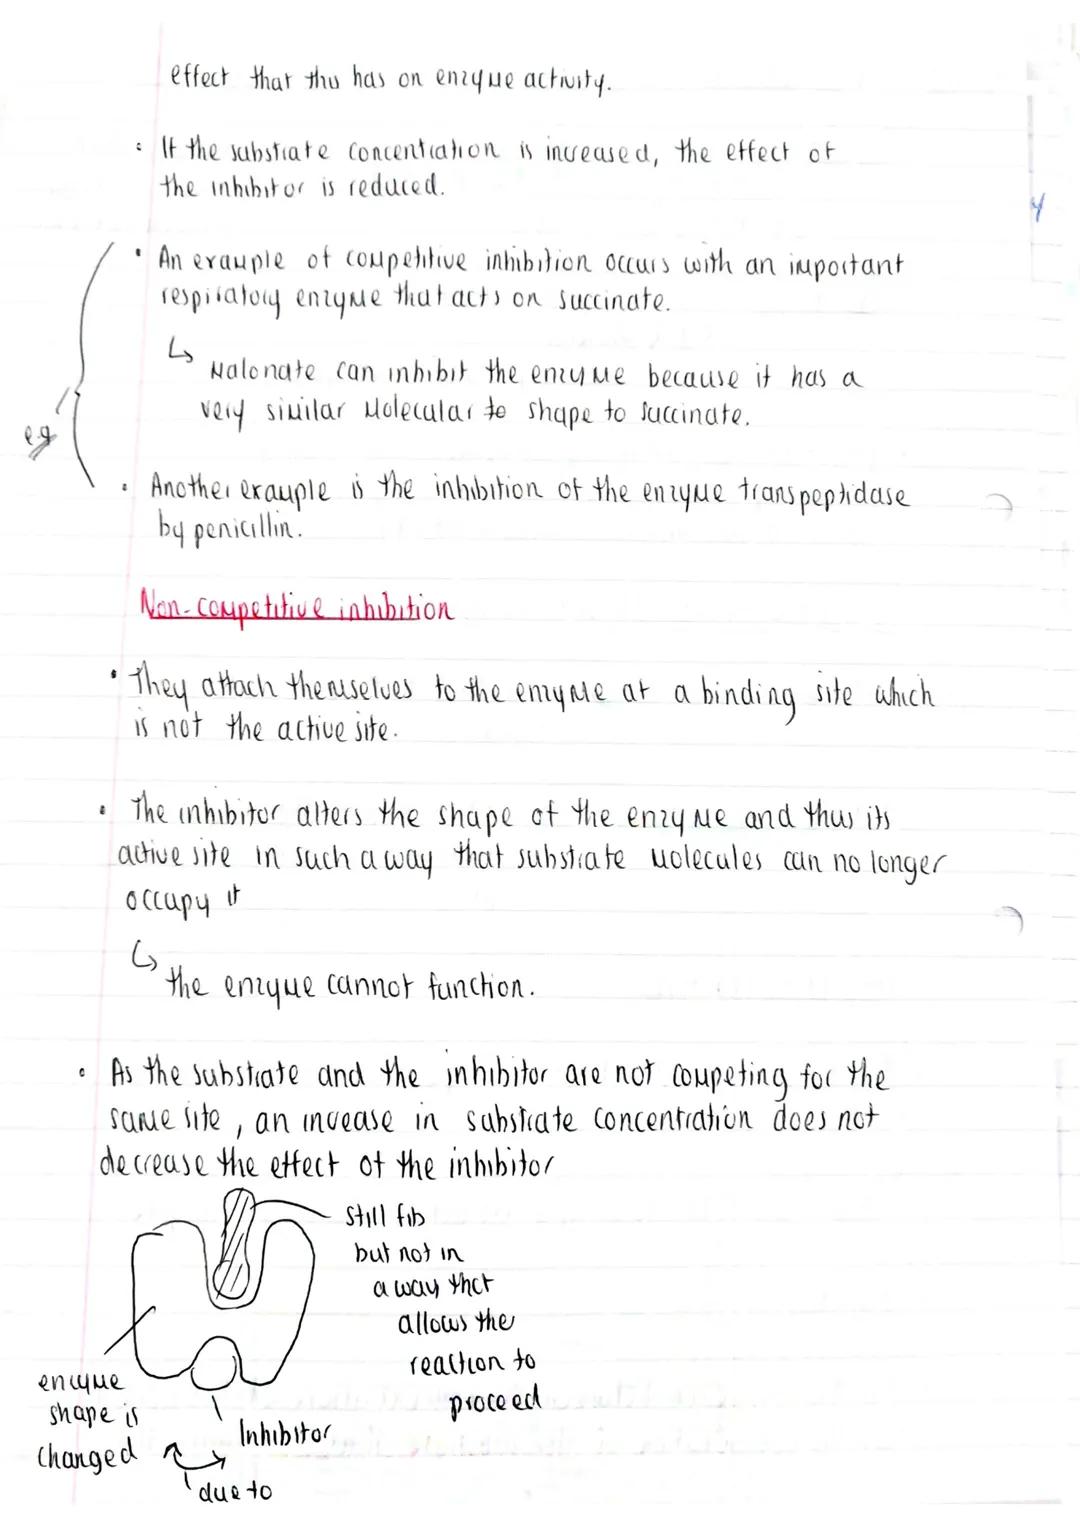 effect that this has on enzyme activity.
• If the substrate concentration is increased, the effect of
the inhibitor is reduced.
• An example of competitive inhibition occurs with an important
respiratory enzyme that acts on succinate.
↳ Malonate can inhibit the enzyme because it has a
very similar molecular to shape to succinate.
e.g
• Another example is the inhibition of the enzyme transpeptidase
by penicillin.
Non-competitive inhibition
• They attach themselves to the enzyme at a binding site which
is not the active site.
• The inhibitor alters the shape of the enzyme and thus its
active site in such a way that substrate molecules can no longer
occupy it
↳ the enzyme cannot function.
• As the substrate and the inhibitor are not competing for the
same site, an increase in substrate concentration does not
decrease the effect of the inhibitor
still fits
but not in
a way that
allows the
reaction to
proceed
enzyme
shape is
changed
Inhibitor
due to